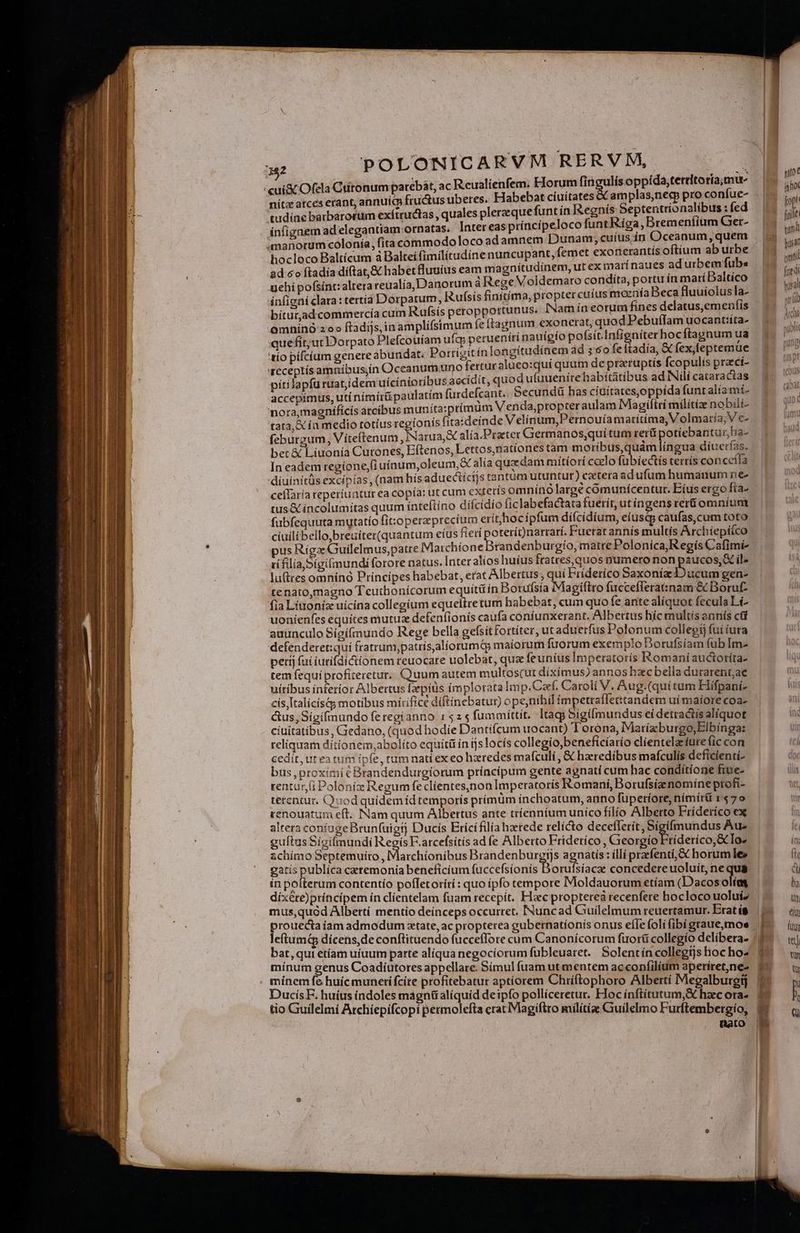 342 POLONICARVM RERVM,
cui&Osela Curonum parebat, ac Reualiensem. Horum singulis oppida, territoria, mu-
nitæ arces erant, annuiq; fructus uberes. Habebat ciuitates & amplas, neq; pro consue-
tudine barbarorum exstructas, quales pleræque sunt in Regnis Septentrionalibus: sed
insignem ad elegantiam ornatas. Inter eas princípe loco sunt Riga, Bremensium Ger-
manorum colonia, sita commodo loco ad amnem Dunam, cuius in Oceanum, quem
hoc loco Balticum à Baltei similitudine nuncupant, semet exonerantis ostium ab urbe
ad 60 stadia distat, & habet fluuius eam magnitudinem, ut ex mari naues ad urbem sub-
uehi possint: altera reualia, Danorum à Rege Voldemaro condita, portu in mari Baltico
insigni clara: tertia Dorpatum, Russis finitima, propter cuius mœnia Beca fluuiolus la-
bitur, ad commercia cum Russis peropportunus. Nam in eorum fines delatus, emensis
omnino 200 stadijs, in amplissimum se stagnum exonerat, quod Pebussam uocant: ita-
que fit, ut Dorpato Plescouiam usq; perueniri nauigio possit. Insigniter hoc stagnum ua
rio piscium genere abundat. Porrigit in longitudinem ad 360 se stadia, & sex, septemue
receptis amnibus, in Oceanum uno fertur alueo: qui quum de præruptis scopulis præci-
piti lapsu ruat, idem uicinioribus accidit, quod usuuenire habitatibus ad Nili cataractas
accepimus, uti nimirũ paulatim surdescant. Secundũ has ciuitates, oppida sunt alia mi-
nora, magnificis arcibus munita: primùm Venda, propter aulam Magistri militiæ nobili-
tata, & in medio totius regionis sita: deinde Velinum, Pernouia maritima, Volmaria, Ve-
seburgum, Vitestenum, Narua, & alia. Præter Germanos, qui tum rerũ potiebantur, ha-
bet & Liuonia Curones, Estenos, Lettos, nationes tàm moribus, quàm lingua diuersas.
In eadem regione, si uinum, oleum, & alia quædam mitiori cœlo subiectis terris concessa
diuinitùs excipias, (nam his aduecticijs tantùm utuntur) cætera ad usum humanum ne-
cessaria reperiuntur ea copia: ut cum exteris omnino large cõmunicentur. Eius ergo sta-
tus & incolumitas quum intestino discidio sic labefactata fuerit, ut ingens rerũ omnium
subsequuta mutatio sit: operæprecium erit, hoc ipsum discidium, eiusq; causas, cum toto
ciuili bello, breuiter (quantum eius fieri poterit) narrari. Fuerat annis multis Archiepisco
pus Rigæ Guilelmus, patre Marchione Brandenburgio, matre Polonica, Regis Casimi-
ri filia, Sigismundi sorore natus. Inter alios huius fratres, quos numero non paucos, & il-
lustres omnino Principes habebat, erat Albertus, qui Friderico Saxoniæ Ducum gen-
te nato, magno Teuthonicorum equitũ in Borussia Magistro successerat: nam & Borus-
sia Liuoniæ uicina collegium equestre tum habebat, cum quo se ante aliquot secula Li-
uonienses equites mutuæ defensionis causa coniunxerant. Albertus hic multis annis cũ
auunculo Sigismundo Rege bella gessit fortiter, ut aduersus Polonum collegij sui iura
defenderet: qui fratrum, patris, aliorumq; maiorum suorum exemplo Borussiam sub Im-
perij sui iurisdictionem reuocare uolebat, quæ se unius Imperatoris Romani auctorita-
tem sequi profiteretur. Quum autem multos (ut diximus) annos hæc bella durarent, ac
uiribus inferior Albertus sæpiùs implorata Imp. Cæs. Caroli V. Aug. (qui tum Hispani-
cis, Italicisq; motibus mirificè distinebatur) ope, nihil impetrasset: tandem ui maiore coa-
ctus, Sigismundo se regi anno 1525 summittit. Itaq; Sigismundus ei detractis aliquot
ciuitatibus, Gedano, (quod hodie Dantiscum uocant) Torona, Mariæburgo, Elbinga:
reliquam ditionem, abolito equitũ in ijs locis collegio, beneficiario clientelæ iure sic con
cedit, ut ea tum ipse, tum nati ex eo hæredes masculi, & hæredibus masculis deficienti-
bus, proximi è Brandendurgiorum principum gente agnati cum hac conditione frue-
rentur, ũ Poloniæ Regum se clientes, non Imperatoris Romani, Borussiæ nomine profi-
terentur. Quod quidem id temporis primùm inchoatum, anno superiore, nimirũ 1579
renouatum est. Nam quum Albertus ante triennium unico filio Alberto Friderico ex
altera coniuge Brunsuigij Ducis Erici filia hærede relicto decesserit, Sigismundus Au-
gustus Sigismundi Regis F. arcessitis ad se Alberto Friderico, Georgio Friderico, & Io-
achimo Septemuiro, Marchionibus Brandenburgijs agnatis: illi præsenti, & horum le-
gatis publica cæremonia beneficium successionis Borussiacæ concedere uoluit, ne qua
in posterum contentio posset oriri: quo ipso tempore Moldauorum etiam (Dacos olim
dixêre) principem in clientelam suam recepit. Hæc propterea recensere hoc loco uolui-
mus, quòd Alberti mentio deinceps occurret. Nunc ad Guilelmum reuertamur. Erat is
prouecta iam admodum ætate, ac propterea gubernationis onus esse soli sibi graue, mo-
lestumq; dicens, de constituendo successore cùm Canonicorum suorũ collegio delibera-
bat, qui etiam uiuum parte aliqua negociorum subleuaret. Solent in collegijs hoc ho-
minum genus Coadiutores appellare. Simul suam ut mentem ac consilium aperiret, ne-
minem se huic muneri scire profitebatur aptiorem Christophoro Alberti Megalburgij
Ducis F. huius indoles magnũ aliquid de ipso polliceretur. Hoc institutum, & hæc ora-
tio Guilelmi Archiepiscopi permolesta erat Magistro militiæ Guilelmo Furstembergio,
nato